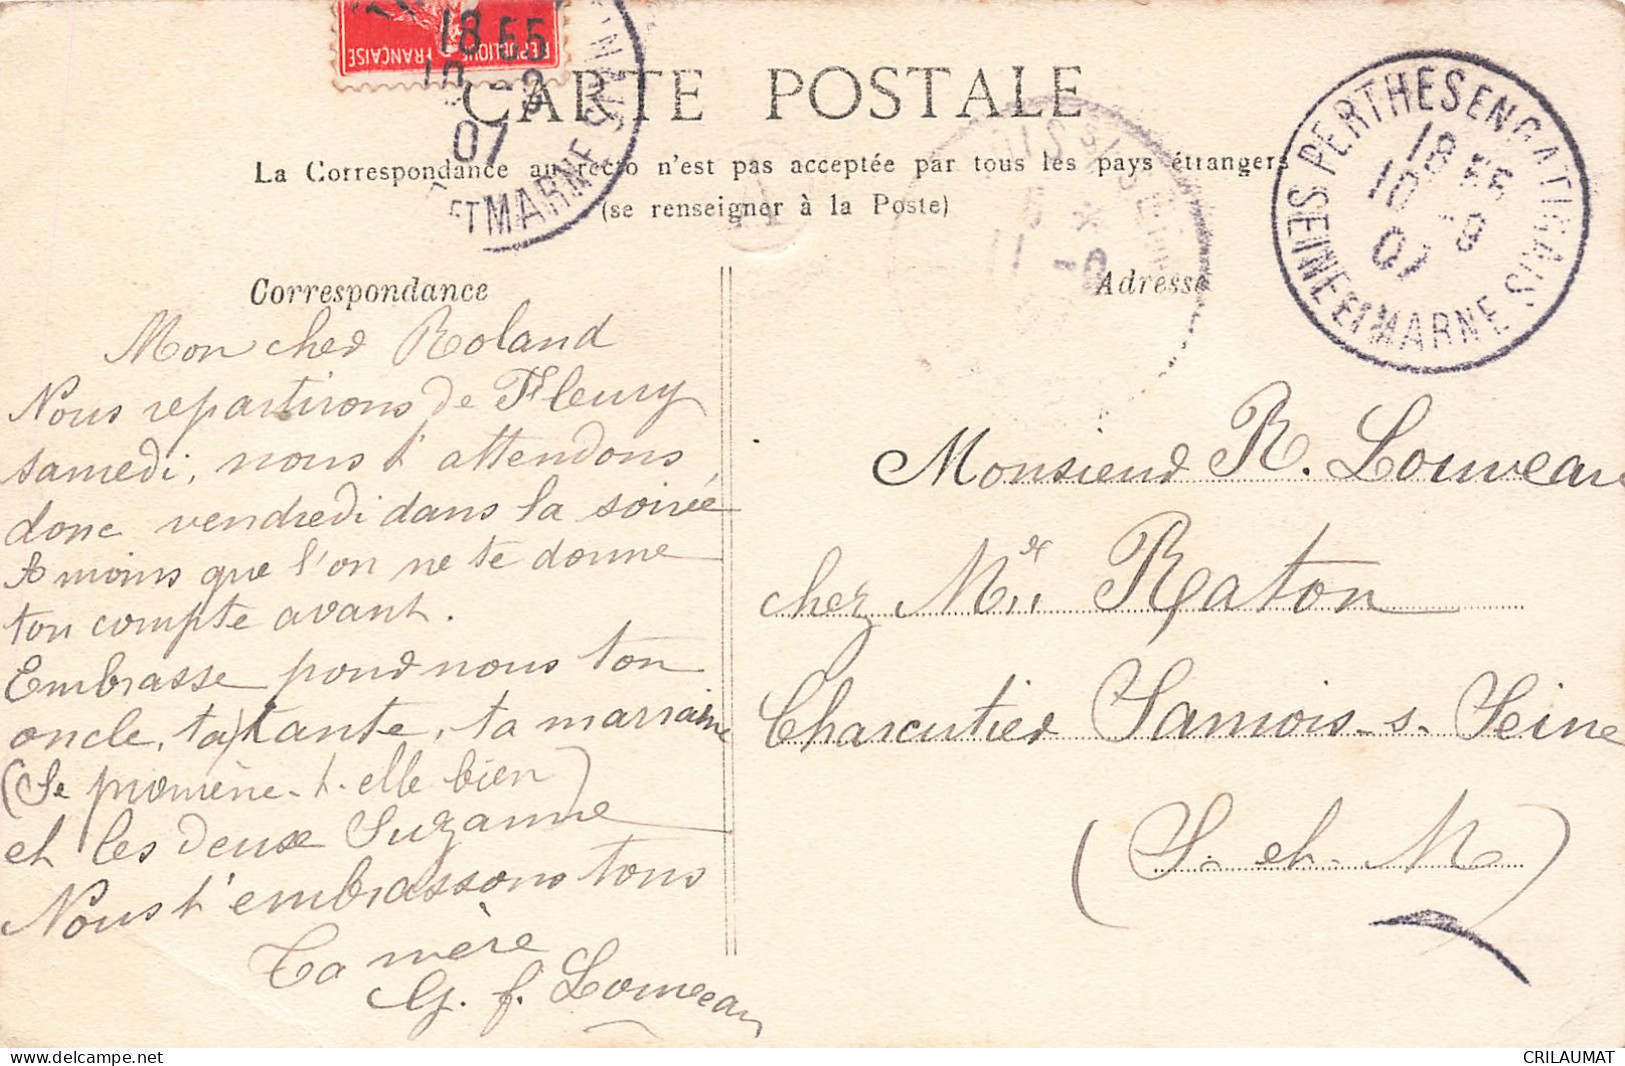 RÉPUBLIQUE FRANÇAISE
18 55
10 -9
07
ET MARNE
CARTE POSTALE
La Correspondance au recto n'est pas acceptée par tous les pays étrangers
(se renseigner à la Poste)
PERTHES EN GATINAIS
18 55
10 -9
07
SEINE ET MARNE
11 -9
Correspondance
Mon cher Roland
Nous repartirons de Fleury
samedi, nous t'attendons
donc vendredi dans la soirée
A moins que l'on ne te donne
ton compte avant.
Embrasse pour nous ton
oncle, ta tante, ta marraine
(Se promène-t-elle bien)
et les deux Suzanne
Nous t'embrassons tous
Ta mère
G. f. Louveau
Adresse
Monsieur R. Louveau
chez Mr Raton
Charcutier Samois-s-Seine
(S.-et-M)
CRILAUMAT